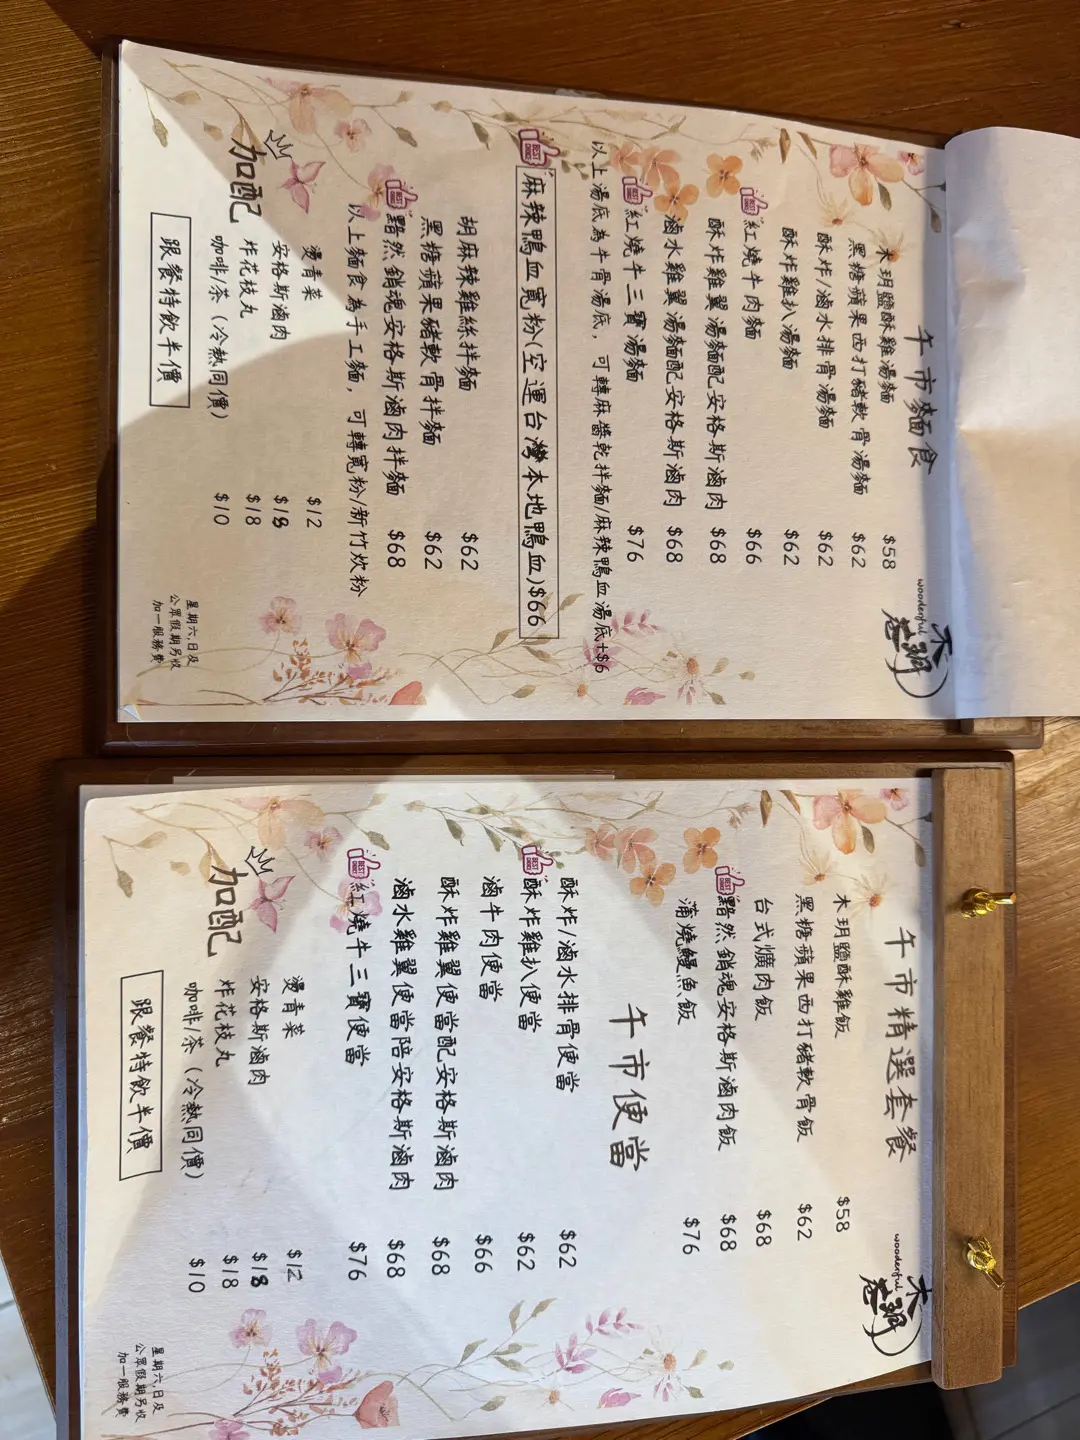 午市麵食
woodenful
木巷弄
木玥鹽酥雞湯麵 $58
黑糖蘋果西打豬軟骨湯麵 $62
酥炸/滷水排骨湯麵 $62
酥炸雞扒湯麵 $62
BEST CHOICE 紅燒牛肉麵 $66
酥炸雞翼湯麵配安格斯滷肉 $68
滷水雞翼湯麵配安格斯滷肉 $68
BEST CHOICE 紅燒牛三寶湯麵 $76
以上湯底為牛骨湯底，可轉麻醬乾拌麵/麻辣鴨血湯底+$6
BEST CHOICE 麻辣鴨血寬粉(空運台灣本地鴨血)$66
胡麻辣雞絲拌麵 $62
黑糖蘋果豬軟骨拌麵 $62
BEST CHOICE 黯然銷魂安格斯滷肉拌麵 $68
以上麵食為手工麵，可轉寬粉/新竹炊粉
加配
燙青菜 $12
安格斯滷肉 $18
炸花枝丸 $18
咖啡/茶（冷熱同價） $10
跟餐特飲半價
星期六,日及
公眾假期另收
加一服務費
午市精選套餐
woodenful
木巷弄
木玥鹽酥雞飯 $58
黑糖蘋果西打豬軟骨飯 $62
台式爌肉飯 $68
BEST CHOICE 黯然銷魂安格斯滷肉飯 $68
蒲燒鰻魚飯 $76
午市便當
酥炸/滷水排骨便當 $62
BEST CHOICE 酥炸雞扒便當 $62
滷牛肉便當 $66
酥炸雞翼便當配安格斯滷肉 $68
滷水雞翼便當陪安格斯滷肉 $68
BEST CHOICE 紅燒牛三寶便當 $76
加配
燙青菜 $12
安格斯滷肉 $18
炸花枝丸 $18
咖啡/茶（冷熱同價） $10
跟餐特飲半價
星期六,日及
公眾假期另收
加一服務費